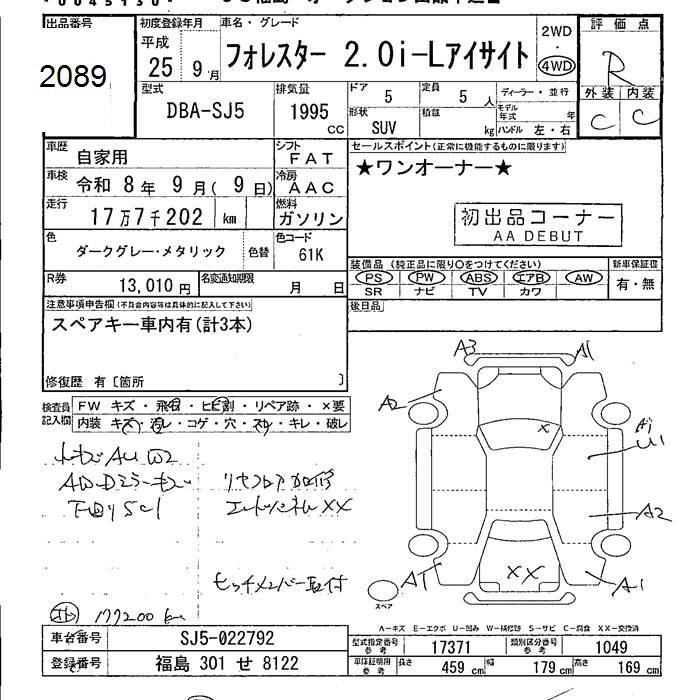 出品番号 初度登録年月 車名・グレード 2WD 評価点
2089 平成 25 9月 フォレスター 2.0i-Lアイサイト 4WD R
型式 排気量 ドア 5 定員 5人 ディーラー・並行 外装 内装
DBA-SJ5 1995 cc 形状 SUV 積載 kg モデル年式 年 ハンドル 左・右 C C
車歴 自家用 シフト FAT セールスポイント(正常に機能するものに限ります)
車検 令和 8年 9月( 9日) 冷房 AAC ★ワンオーナー★
走行 17万7千202 km 燃料 ガソリン 初出品コーナー
AA DEBUT
色 ダークグレー・メタリック 色替 色コード 61K
装備品 (純正品に限り○をつけてください) 新車保証書
PS PW ABS エアB AW 有・無
SR ナビ TV カワ
R券 13,010円 名変通知期限 月 日 後日品
注意事項申告欄(不具合内容等は具体的に記入して下さい)
スペアキー車内有(計3本)
修復歴 有〔箇所 〕
検査員記入欄 FW キズ・飛石・ヒビ割・リペア跡・×要
内装 キズ・汚レ・コゲ・穴・スレ・キレ・破レ
A3 A1
A2
X
U1
A2
A1
XX
リヤフロア
エンドパネルXX
ヒッチメンバー取付
スペア
177200 km
A-キズ E-エクボ U-凹み W-補修跡 S-サビ C-腐食 XX-交換済
車台番号 SJ5-022792 型式指定番号 参考 17371 類別区分番号 参考 1049
登録番号 福島 301 せ 8122 車庫証明用 参考 長さ 459 cm 幅 179 cm 高さ 169 cm